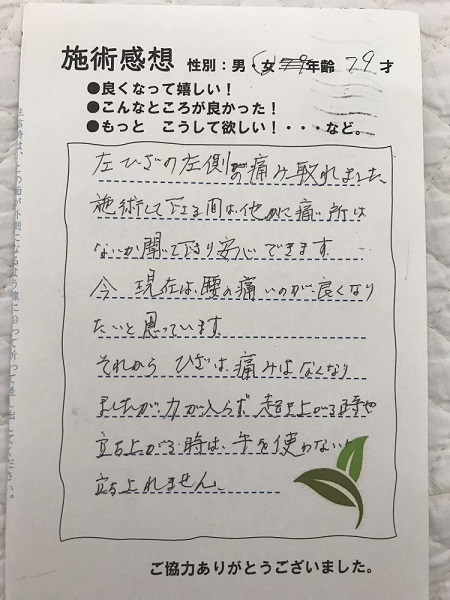 施術感想 性別：男・女 年齢 79才
●良くなって嬉しい！
●こんなところが良かった！
●もっと こうして欲しい！・・・など。
左ひざの左側の痛み取れました、
施術して下さる間は、他かに痛い所は
ないか聞いて下さり安心できます。
今 現在は、腰の痛いのが良くなり
たいと思っています。
それから ひざは、痛みはなくなり
ましたが力が入らず、起き上がる時や
立ち上がる時は、手を使わないと
立ち上れません。
ご協力ありがとうございました。